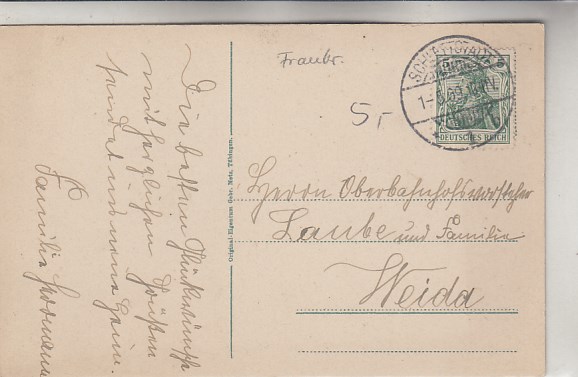 Die besten Glückwünsche
mit herzlichen Grüßen
sendet
Familie
Original-Eigentum Gebr. Metz, Tübingen.
Frankr.
5,-
DEUTSCHES REICH
Herrn Oberbahnhofsvorsteher
Laube und Familie
Weida